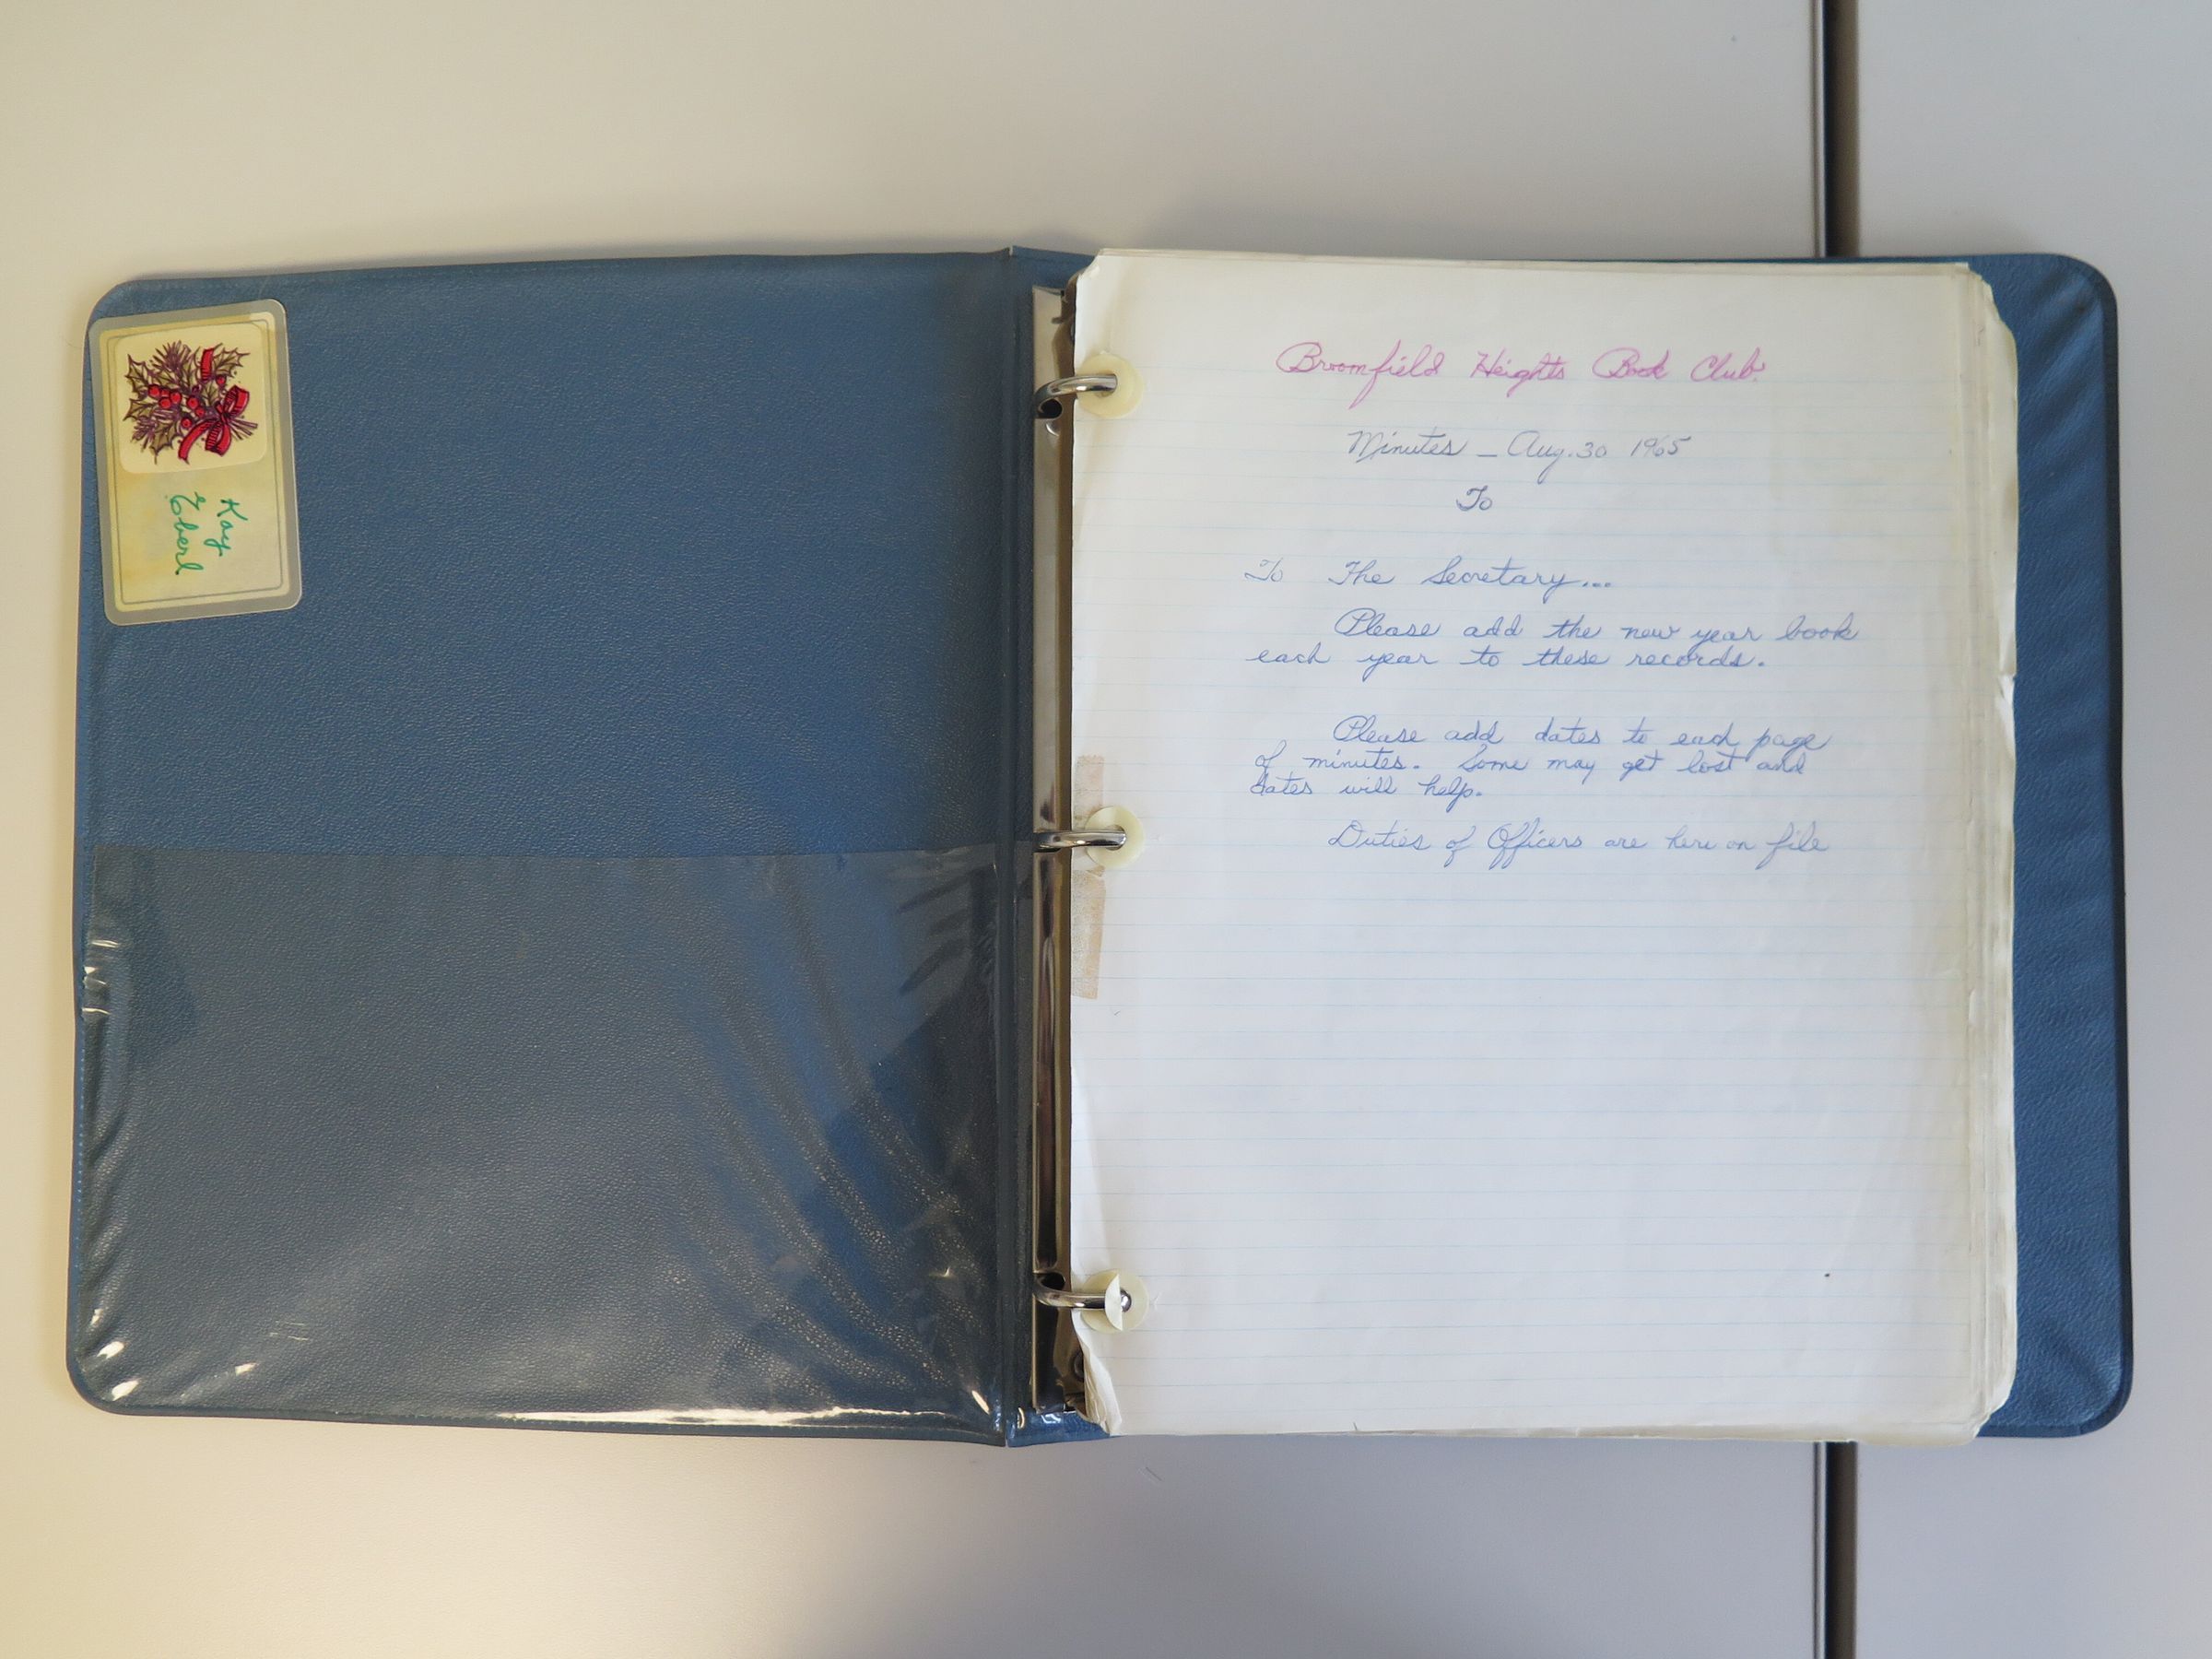 Kay
Eberl
Broomfield Heights Book Club.
Minutes - Aug. 30 1965
To
To The Secretary...
Please add the new year book
each year to these records.
Please add dates to each page
of minutes. Some may get lost and
dates will help.
Duties of Officers are here on file